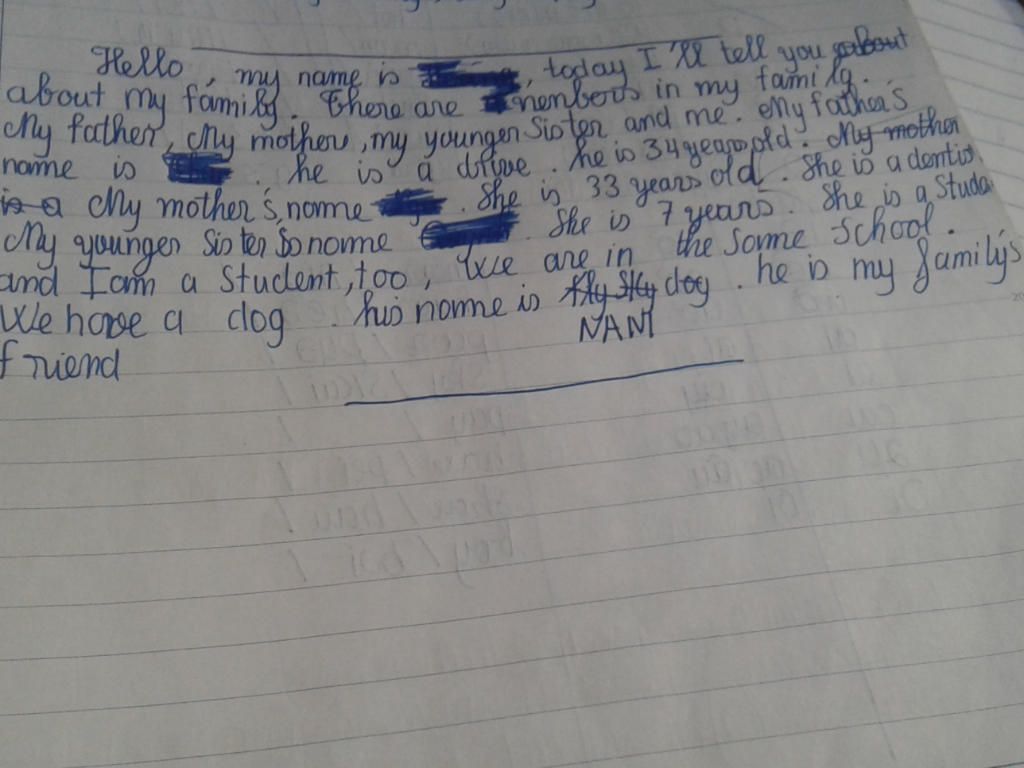 Hello, my name is , today I'll tell you about
about my family. There are members in my family.
My father, My mother, my younger sister and me. My father's
name is . he is a drive. he is 34 years old. My mother
is a My mother's, nome . She is 33 years old. She is a dentis
My younger sister's nome . She is 7 years. She is a Studa
and I am a student, too, We are in the some school.
We hove a dog. his nome is dog. he is my family's
NANI
friend